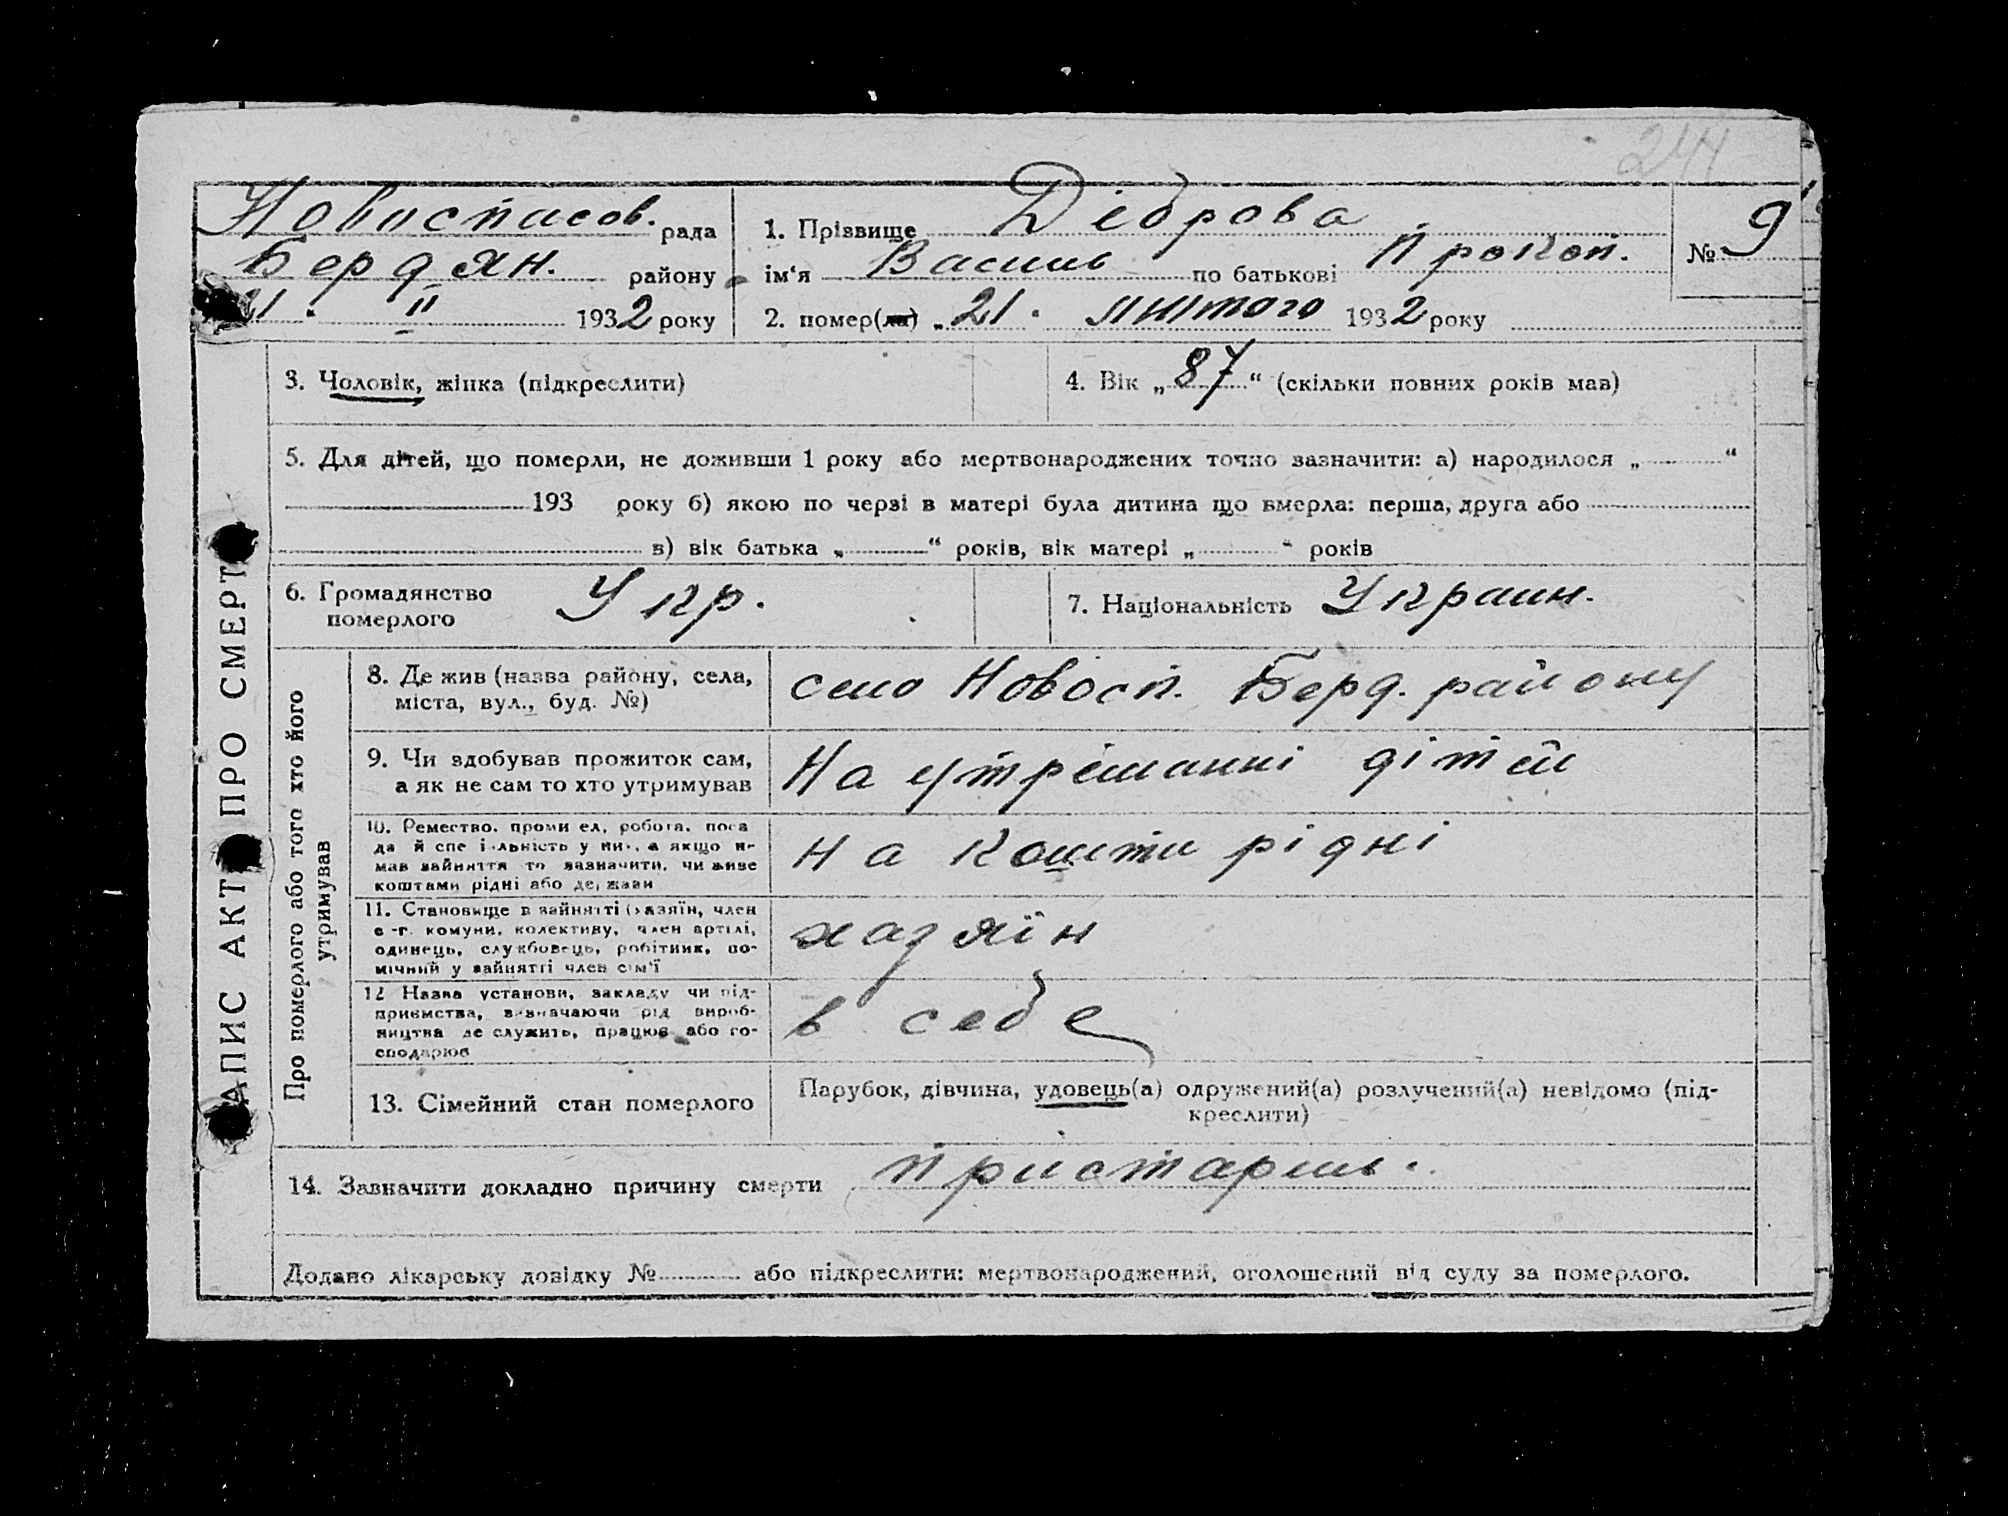 244
Новоспасов. рада
Бердян. району
21 " II 1932 року
1. Прізвище Діброва
ім‘я Василь по батькові Прокоп.
2. помер(ла) „21. лютого 1932 року
№ 9
ЗАПИС АКТ ПРО СМЕРТЬ
3. Чоловік, жінка (підкреслити)
4. Вік „87“ (скільки повних років мав)
5. Для дітей, що померли, не доживши 1 року або мертвонароджених точно зазначити: а) народилося „ “
193 року б) якою по черзі в матері була дитина що вмерла: перша, друга або
в) вік батька „ “ років, вік матері „ “ років
6. Громадянство
померлого
Укр.
7. Національність Украин.
Про померлого або того хто його
утримував
8. Де жив (назва району, села,
міста, вул., буд. №)
село Новосп. Берд. району
9. Чи здобував прожиток сам,
а як не сам то хто утримував
На утриманні дітей
10. Ремество, промисел, робота, поса
да й спеціяльність у них, а якщо н-
мав зайняття то зазначити, чи живе
коштами рідні або держави
на кошти рідні
11. Становище в зайнятті (хазяїн, член
с.-г. комуни, колективу, член артілі,
одинець, службовець, робітник, по-
мічний у зайнятті член сім‘ї
хазяїн
12 Назва установи, закладу чи під-
приємства, визначаючи рід вироб-
ництва де служить, працює або го-
сподарює
в себе
13. Сімейний стан померлого
Парубок, дівчина, удовець(а) одружений(а) розлучений(а) невідомо (під-
креслити)
14. Зазначити докладно причину смерти
Додано лікарську довідку № або підкреслити: мертвонароджений, оголошений від суду за померлого.